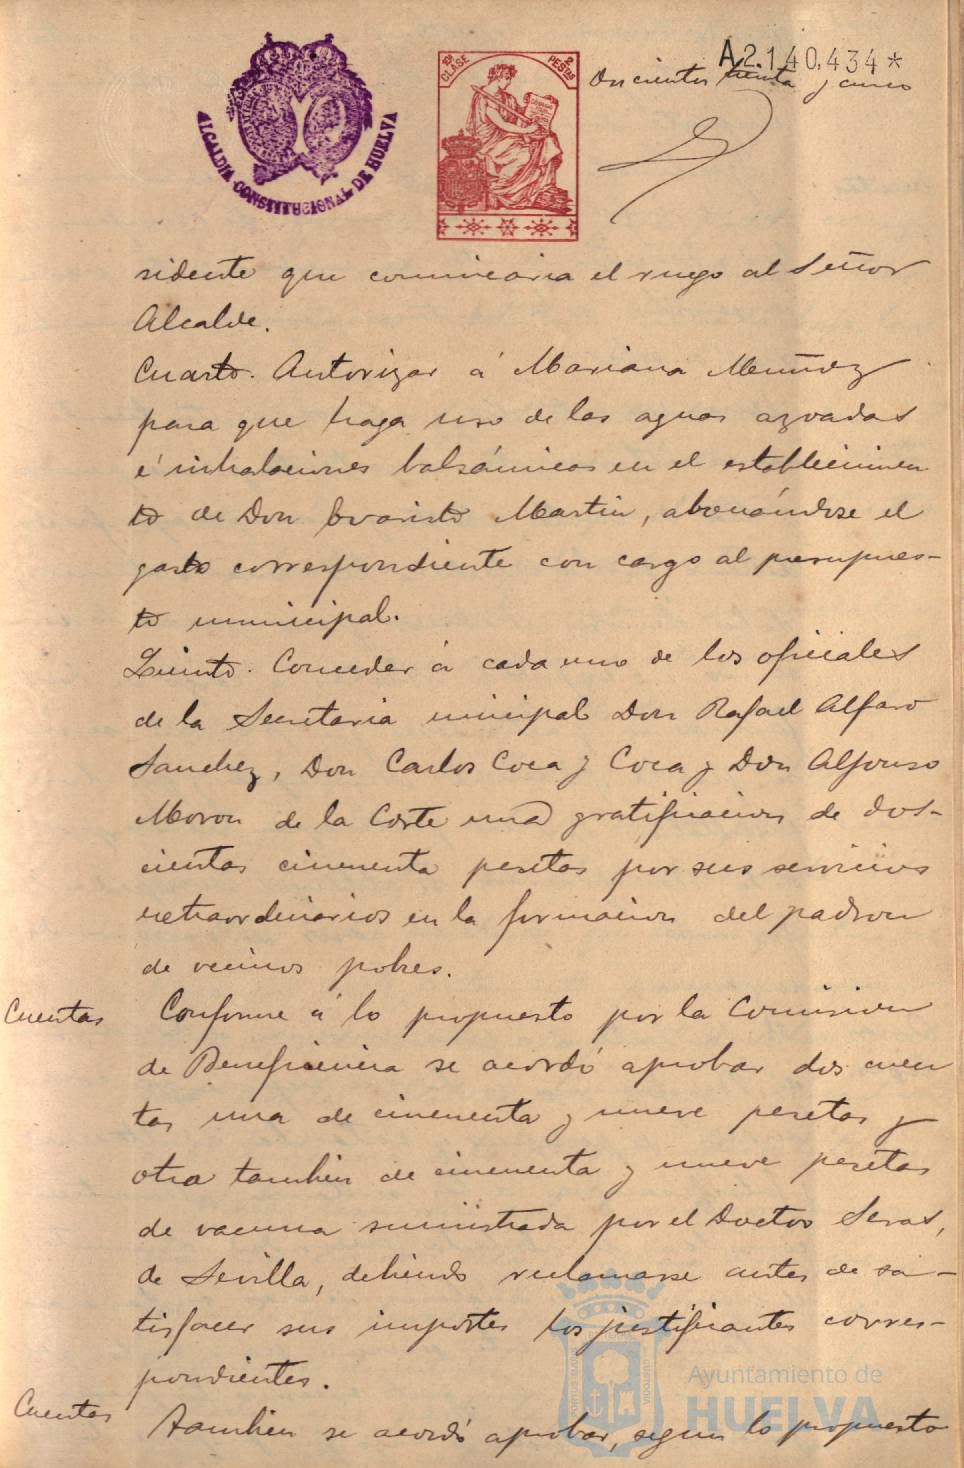 A2.140,434*
Doscientos treinta y cinco
10ª CLASE
2 PESTAS
ALCALDIA CONSTITUCIONAL DE HUELVA
sidente que comunicaria el ruego al Señor
Alcalde.
Cuarto. Autorizar á Mariana Muñoz
para que haga uso de las aguas azoadas
é inhalaciones balsámicas en el establecimien
to de Don Evaristo Martin, abonándose el
gasto correspondiente con cargo al presupues-
to municipal.
Quinto. Conceder á cada uno de los oficiales
de la Secretaria municipal Don Rafael Alfaro
Sanchez, Don Carlos Coca y Coca y Don Alfonso
Moron de la Corte una gratificacion de dos-
cientas cincuenta pesetas por sus servicios
extraordinarios en la formacion del padron
de vecinos pobres.
Cuentas
Conforme á lo propuesto por la Comision
de Beneficencia se acordó aprobar dos cuen
tas una de cincuenta y nueve pesetas y
otra tambien de cincuenta y nueve pesetas
de vacuna suministrada por el Doctor Seras,
de Sevilla, debiendo reclamarse antes de sa-
tisfacer sus importes los justificantes corres-
pondientes.
Cuentas
Tambien se acordó aprobar, segun lo propuesto
Ayuntamiento de
HUELVA